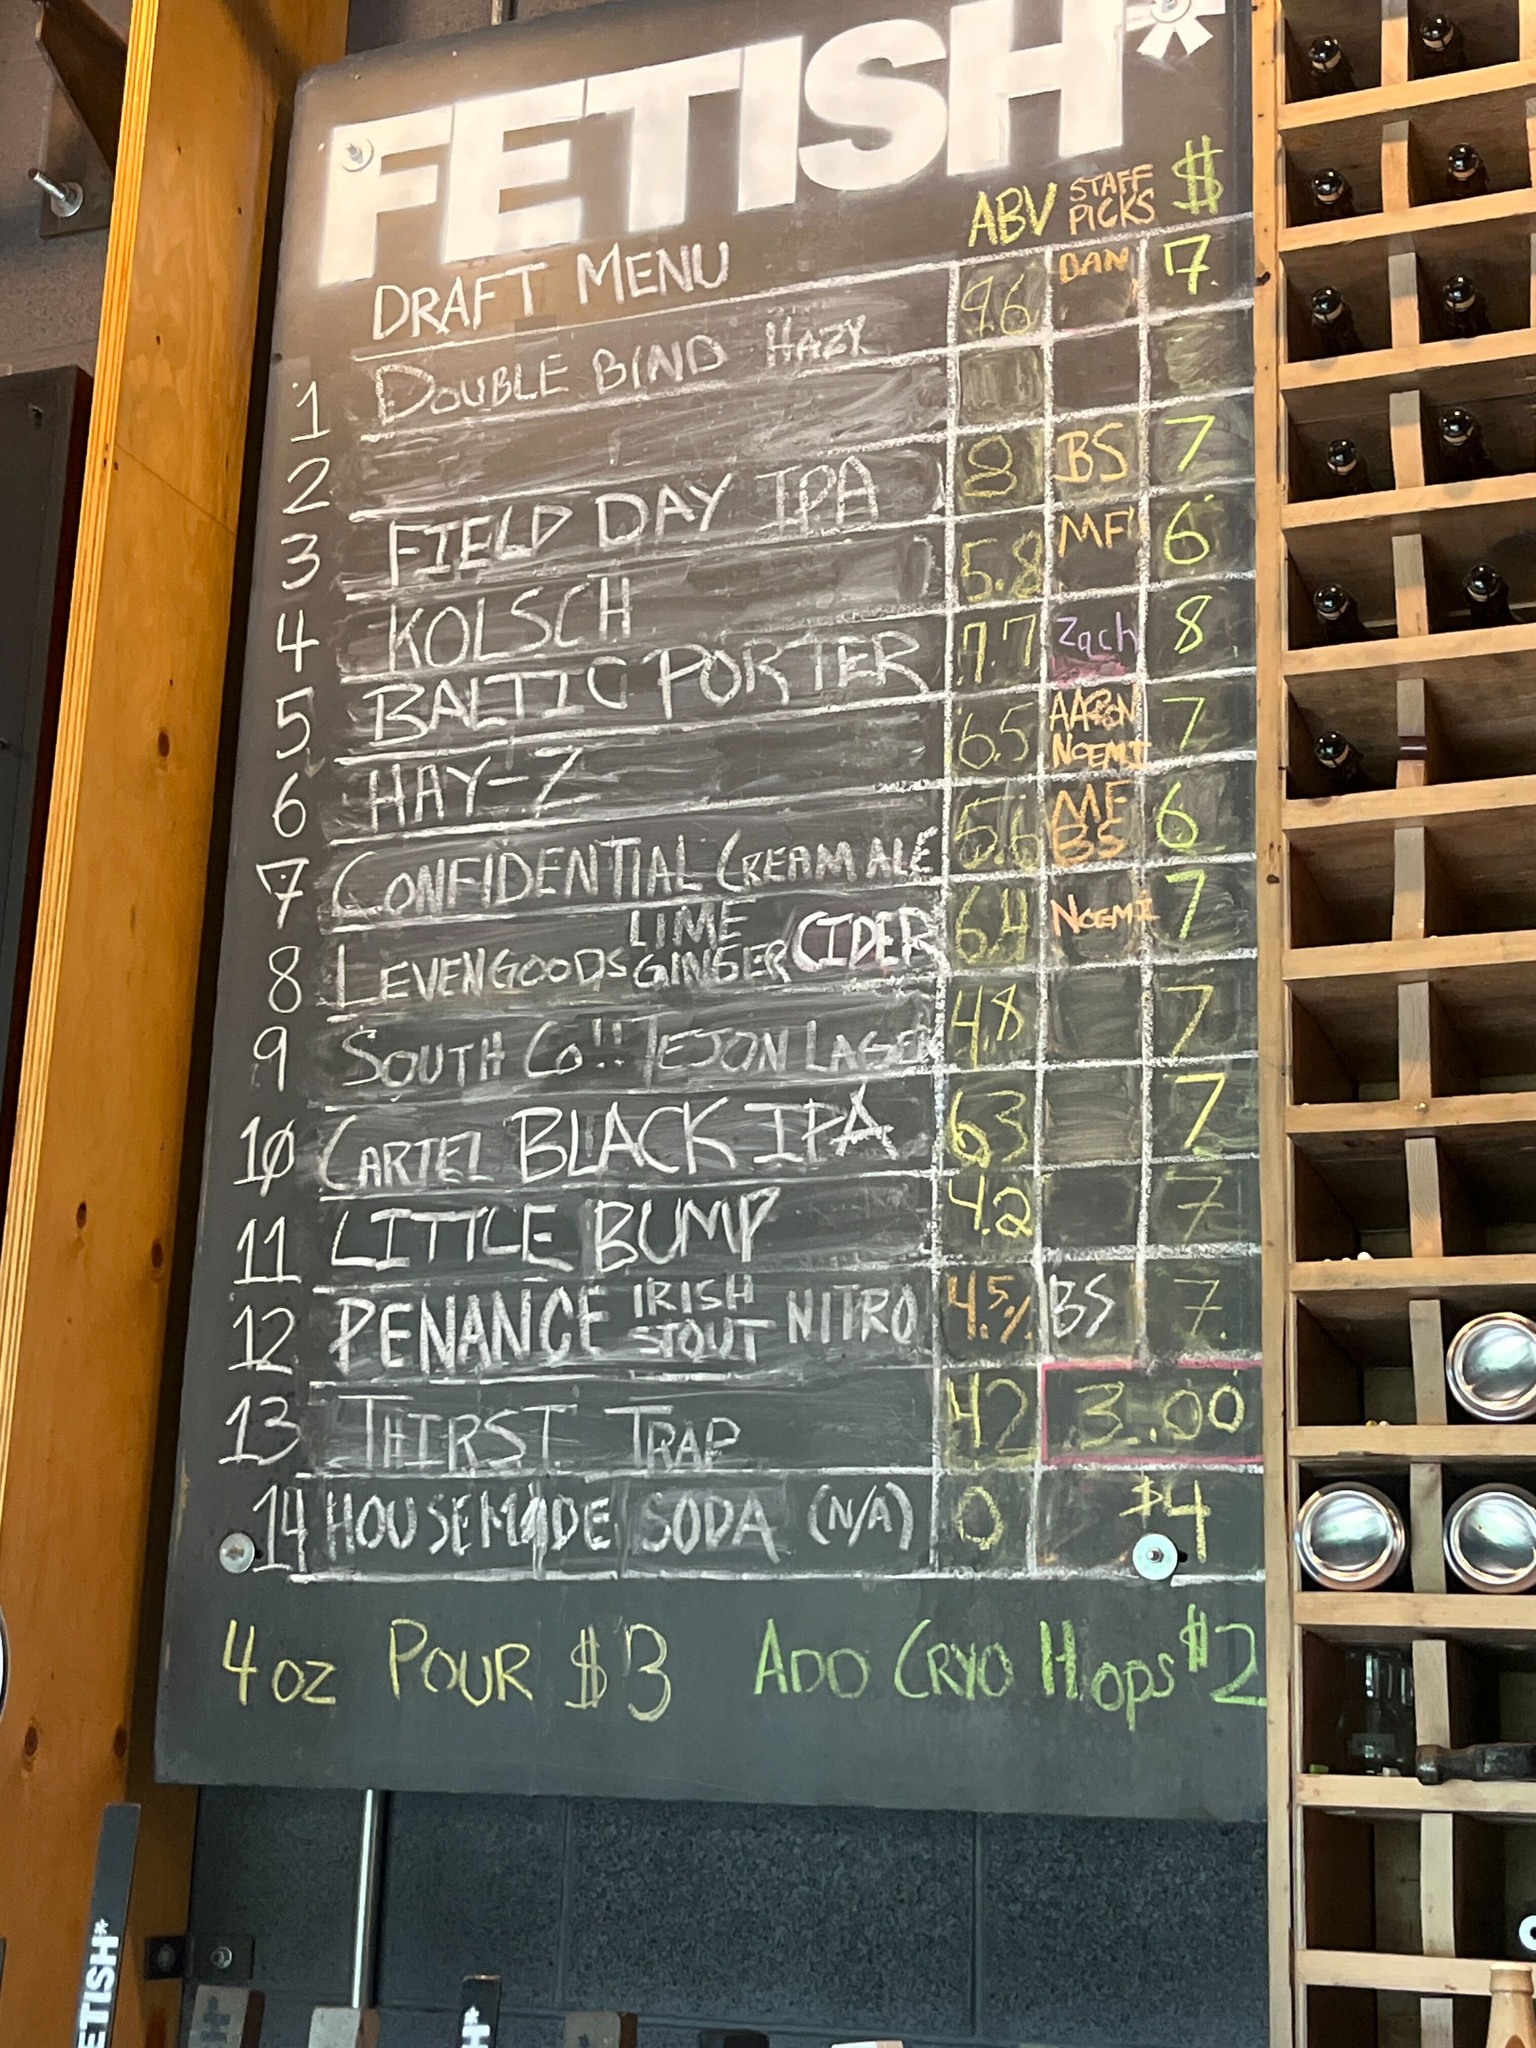 FETISH*
DRAFT MENU ABV STAFF PICKS $
1 DOUBLE BIND HAZY 9.6 DAN 7
2
3 FIELD DAY IPA 8 BS 7
4 KOLSCH 5.8 MF 6
5 BALTIC PORTER 7.7 Zach 8
6 HAY-Z 6.5 AARON NOEMI 7
7 CONFIDENTIAL CREAM ALE 5.6 MF BS 6
8 LEVENGOODS LIME GINGER CIDER 6.4 NOEMI 7
9 SOUTH Co!! TEJON LAGER 4.8 7
10 CARTEL BLACK IPA 6.3 7
11 LITTLE BUMP 4.2 7
12 PENANCE IRISH STOUT NITRO 4.5% BS 7
13 THIRST TRAP 4.2 3.00
14 HOUSEMADE SODA (N/A) 0 $4
4 oz POUR $3 ADD CRYO HOPS $2
ETISH*
H*